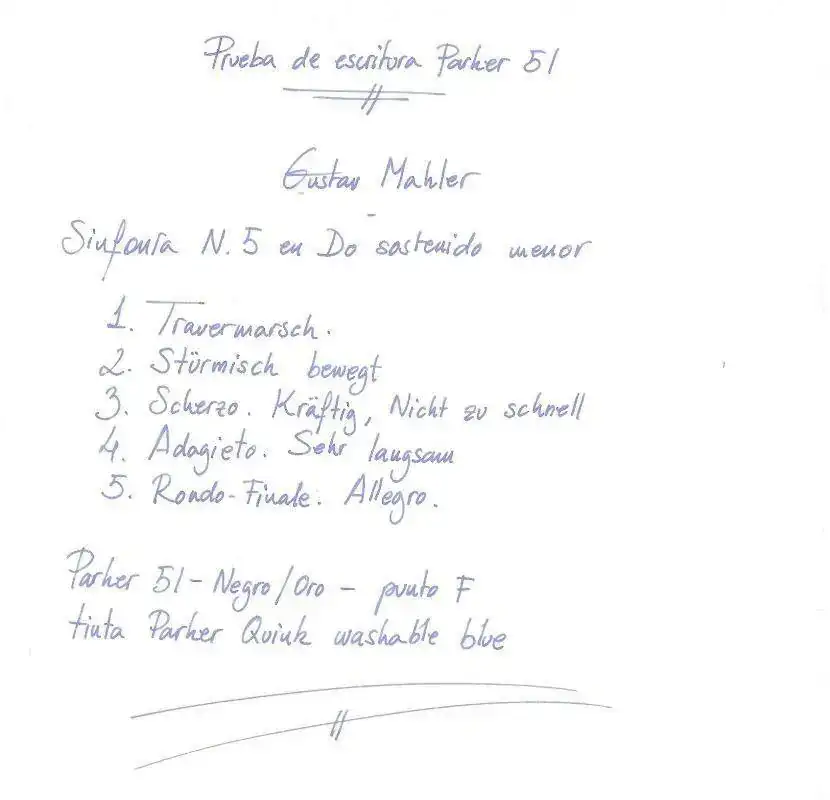 Prueba de escritura Parker 51
Gustav Mahler
Sinfonía N. 5 en Do sostenido menor
1. Travermarsch.
2. Stürmisch bewegt
3. Scherzo. Kräftig, Nicht zu schnell
4. Adagieto. Sehr langsam
5. Rondo-Finale. Allegro.
Parker 51 - Negro/Oro - punto F
tinta Parker Quink washable blue